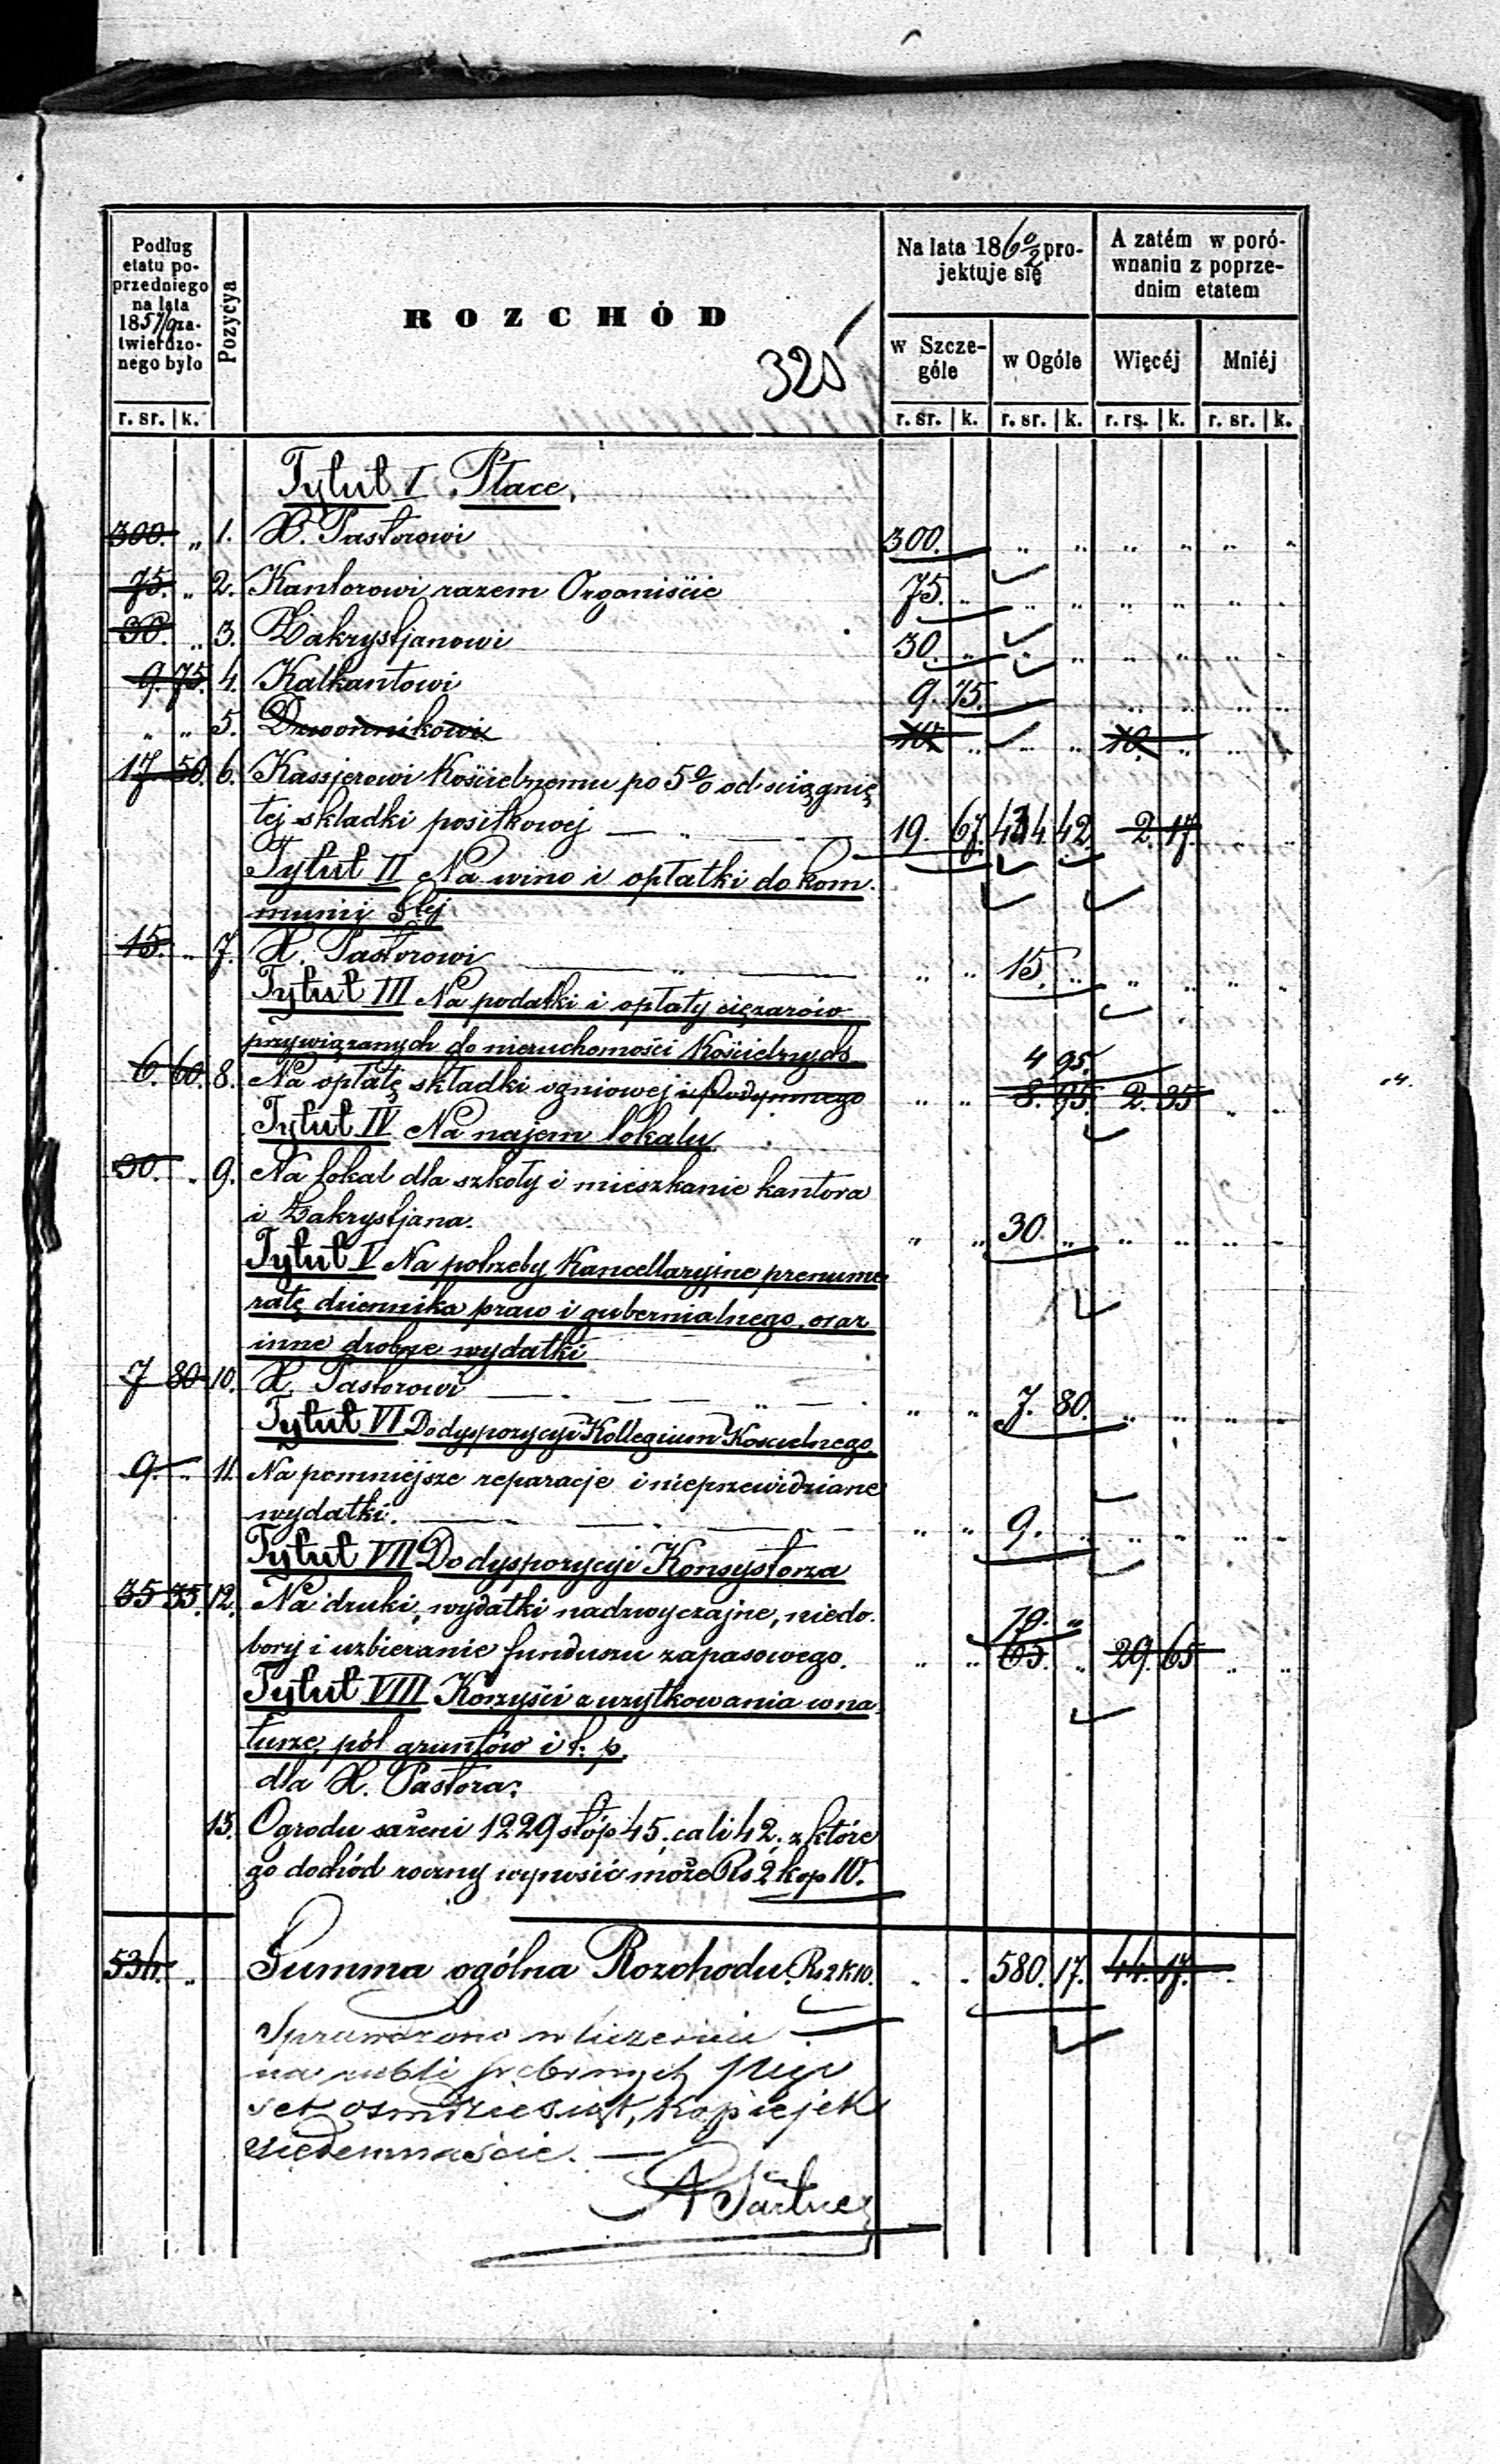 Podług
etatu po-
przedniego
na lata
1857/9 za-
twierdzo-
nego było
r. sr. k.
Pozycya
ROZCHÓD
325
Na lata 1860/2 pro-
jektuje się
w Szcze-
góle
w Ogóle
r. sr. k. r. sr. k.
A zatém w poró-
wnaniu z poprze-
dnim etatem
Więcéj Mniéj
r. rs. k. r. sr. k.
Tytuł I Płace,
300. „ 1. X. Pastorowi 300. „ „ „ „ „ „
75. „ 2. Kantorowi razem Organiście 75. „ „ „ „ „ „ „
30. „ 3. Zakrystjanowi 30. „ „ „ „ „ „ „
9. 75. 4. Kalkantowi 9. 75. „ „ „ „
„ „ 5. Dzwonnikowi 10. „ „ „ 10. „ „
17 50. 6. Kassjerowi Kościelnemu po 5% od ściągnię
tej składki posiłkowej 19. 67. 434. 42. 2. 17.
Tytuł II Na wino i opłatki do kom
munii Stej
15. „ 7. X. Pastorowi „ „ 15. „ „ „ „ „
Tytuł III Na podatki i opłaty ciężarów
przywiązanych do nieruchomości Kościelnych
4 95.
6. 60. 8. Na opłatę składki ogniowej i Podymnego „ „ 8. 95. 2. 35 „ „
Tytuł IV Na najem lokalu
30. „ 9. Na lokal dla szkoły i mieszkanie kantora
i Zakrystjana. „ „ 30. „ „ „ „ „
Tytuł V Na potrzeby Kancellaryjne prenume
ratę dziennika praw i gubernialnego, oraz
inne drobne wydatki
7 80 10. X. Pastorowi „ „ 7. 80. „ „ „ „
Tytuł VI Do dyspozycyi Kollegium Koscielnego
9. „ 11. Na pomniejsze reparacje i nieprzewidziane
wydatki. „ „ 9. „ „ „ „ „
Tytuł VII Do dyspozycyi Konsystorza
35 35. 12. Na druki, wydatki nadzwyczajne, niedo-
79. „
bory i uzbieranie funduszu zapasowego. „ „ 65. „ 29. 65 „ „
Tytuł VIII Korzyści z użytkowania w na
turze, pól gruntów i t. p.
dla X. Pastora:
13. Ogrodu sażeni 1229 stóp 45, cali 42. z które
go dochód roczny wynosić może Rs 2 kop 10.
536. „ Summa ogólna Rozchodu. Rs 2 K 10. „ „ 580. 17. 44. 17. „
Sprawdzono w liczeniu
na rubli srebrnych pięć
set osmdziesiąt, kopiejek
siedemnaście.